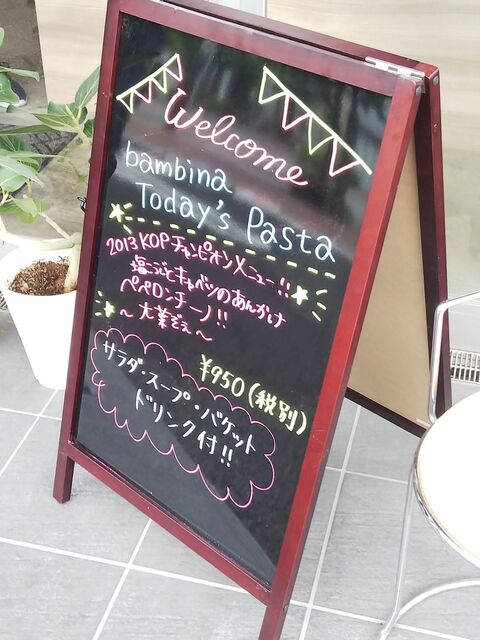 Welcome
bambina
Today's Pasta
2013 KOPチャンピオンメニュー!!
塩こぶとキャベツのあんかけ
ペペロンチーノ!!
~大葉ぞえ~
¥950(税別)
サラダ・スープ・バケット
ドリンク付!!